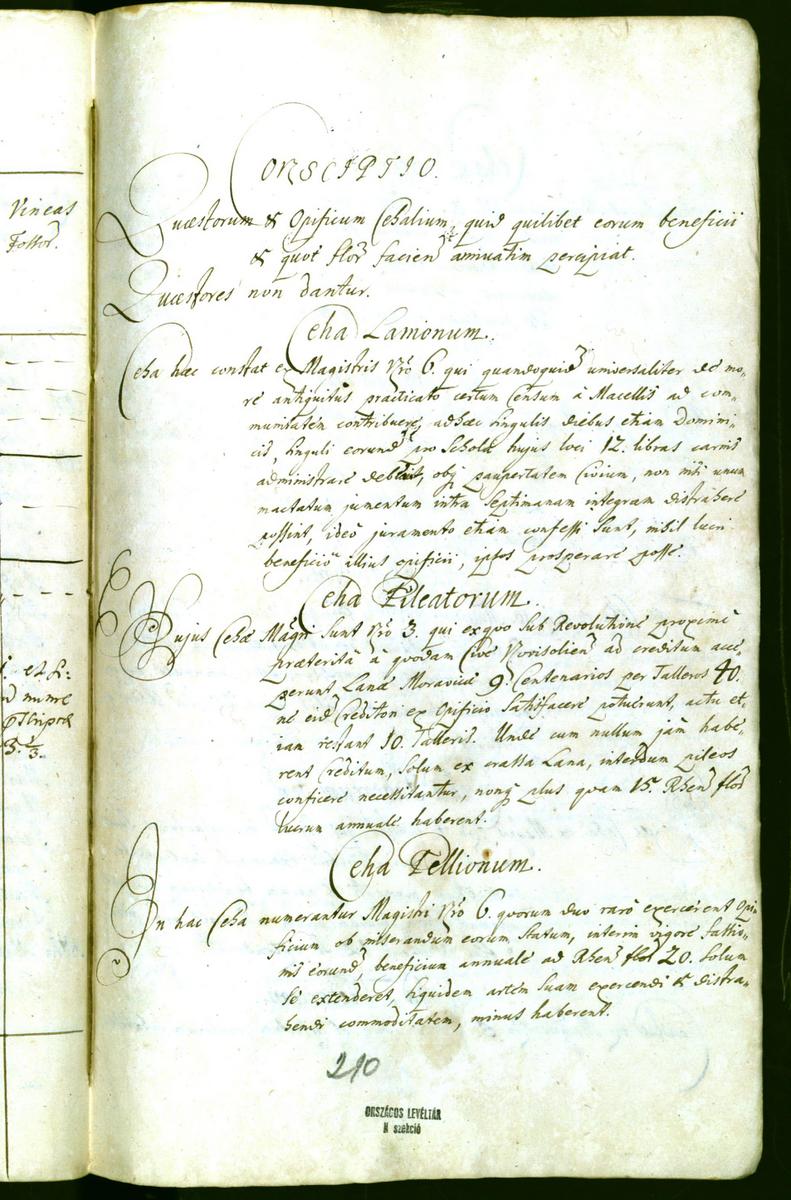 Vineas
Fossor.
CONSCIPTIO.
Quæstorum & Opificum Cehalium, quid quilibet eorum beneficii
& quot flor facien annuatim percipiat.
Quæstores non dantur.
Ceha Lanionum.
Ceha hæc constat ex Magistris Nro 6. qui quandoquid universaliter de mo-
re antiquitus practicato certum Censum à Macellis ad com-
munitatem contribuere, adhæc singulis diebus etiam Domini-
cis, singuli eorund pro Schola hujus loci 12. libras carnis
administrare debeant, obq paupertatem Civium, non nisi unum
mactatum jumentum intra Septimanam integram distrahere
possint, ideò juramento etiam confessi sunt, nihil lucri
beneficiò illius opificii, ipsos prosperare posse.
Ceha Pileatorum.
Hujus Cehæ Magri sunt Nro 3. qui exquo sub Revolutione proximè
præteritâ à quodam Cive Novisolien ad creditum acce-
perunt, Lanæ Moravicæ 9. Centenarios per Talleros 40.
ne eid Creditori ex Opificio Satisfacere potuerunt, actu et-
iam restant 10. Talleris. Unde cum nullum jam habe-
rent Creditum, solum ex crassa Lana, interdum pileos
conficere necessitantur, nonq plus quam 15. Rhen flor
lucrum annuale haberent.
Ceha Pellionum.
In hac Ceha numerantur Magistri Nro 6. quorum duo rarò exercerent Opi-
ficium ob miserandum eorum Statum, interim vigore fassio-
nis eorund, beneficium annuale ad Rhen flor 20. solum
se extenderet, siquidem artem suam exercendi & distra-
hendi commoditatem, minus haberent.
210
ORSZÁGOS LEVÉLTÁR
N szekció